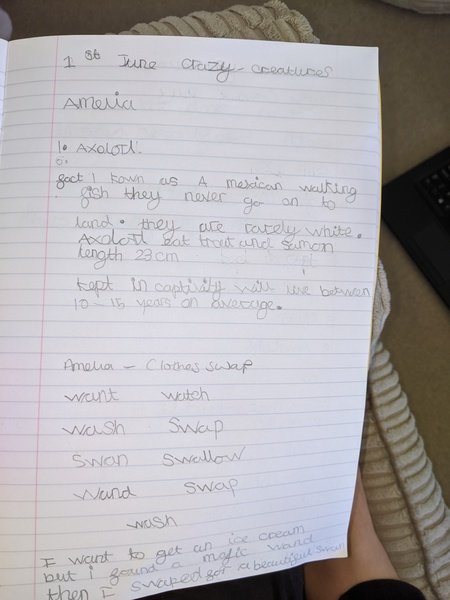 1st June crazy creatures
Amelia
1. Axolotl.
fact 1 kown as A mexican walking
fish they never go on to
land. they are rarely white.
Axolotl eat trout and Samon
length 23cm
kept in captivity will live between
10-15 years on average.
Amelia - Clothes swap
want watch
wash Swap
Swan Swallow
wand swap
wash
I want to get an ice cream
but i found a magic wand
then I swaped for a beautiful swan